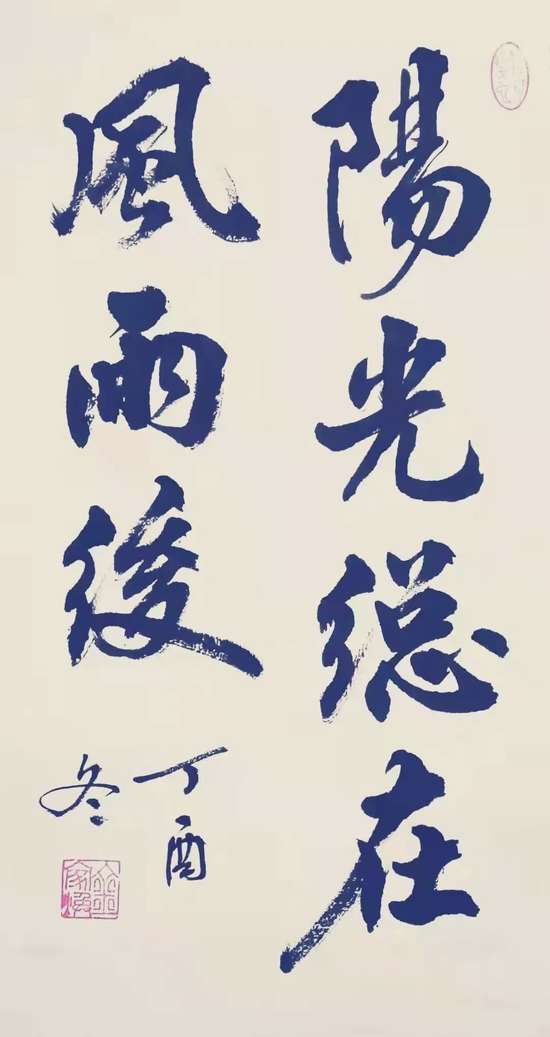 陽光総在
風雨後
丁酉
冬